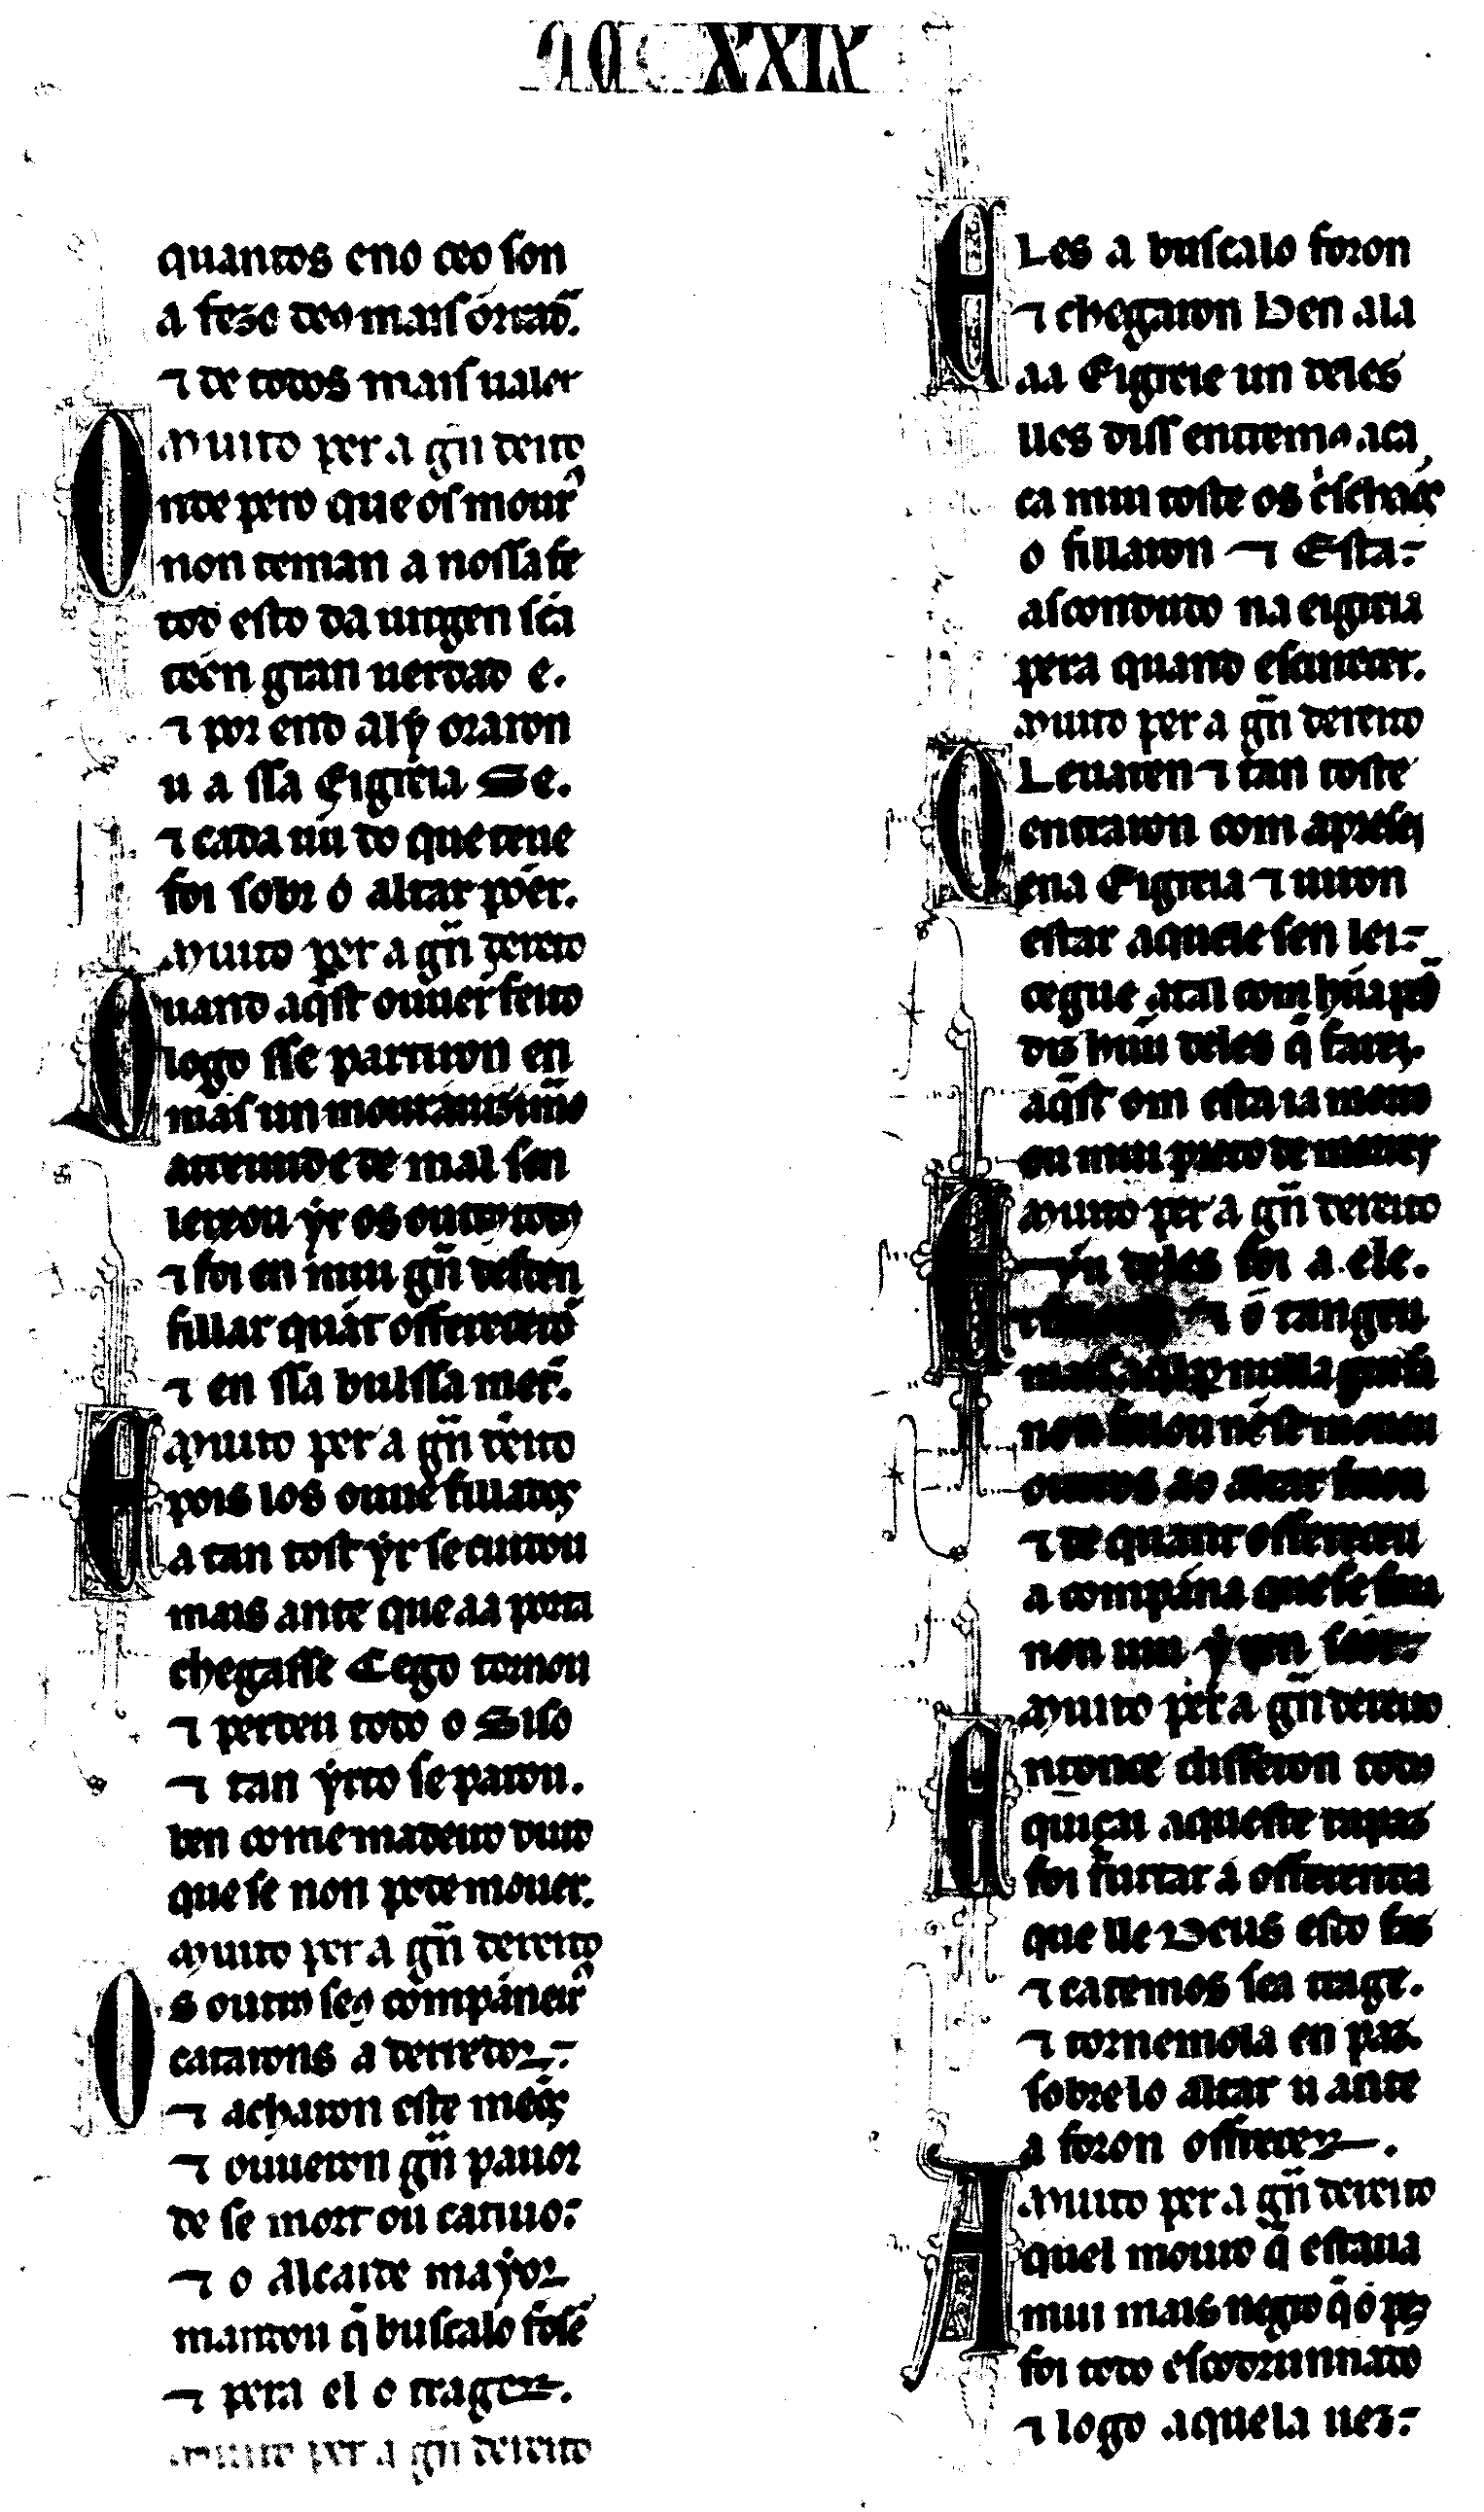 XXIX
quantos eno ceo son
a feze deꝯ mais onrrad̃.
⁊ de todos mais ualer
Muito per a gñ dereito
Onde pero que os mour̃
non teman a nossa fe
tod esto da uirgen sc̃a
tẽen gran uerdad e.
⁊ por end alý oraron
u a ssa Eigreia Se.
⁊ cada ũu do que teue
foi sobr o altar põer.
Muito per a gñ dereito
Quand aq̃st ouuer̃ feito
logo sse partiron en
mas un
atreuud e de mal sen
leixou ýr os outrꝯ todꝯ
⁊ foi en mui gñ desden
fillar quãt offereceron
⁊ en ssa bulssa mer̃.
Muito per a gñ dereito
E pois los ouue fillados
a tan tost ýr se cuidou
mais ante que aa porta
chegasse Cego tornou
⁊ perdeu todo o Siso
⁊ tan ýrto se parou.
ben come madeiro duro
que se non pode mouer.
Muito per a gñ dereito
Os outrꝯ seꝯ companneir̃
cataronss a derredor
⁊ acharon este menꝯ
⁊ ouueron gñ pauor
de se mort ou catiuo
⁊ o Alcaide mayor
mandou q̃ buscalo fossẽ
⁊ pera el o trager.
Muito per a gñ dereito
Eles a buscalo foron
⁊ chegaron ben ala
aa Eigreie un deles
lles diss entremꝯ aca
ca mui toste os
o fillaron ⁊ Esta
ascondudo na eigreia
pera quand escurecer.
Muito per a gñ dereito
O Leuaren ⁊ tan toste
entraron com apresei
ena Eigreia ⁊ uiron
estar aquele sen lei
cegue atal com hũa pedr̃
dis hũu deles q̃ farei.
aq̃st om esta ia morto
ou mui preto de morrer
Muito per a gñ dereito
E ũu deles foi a ele.
⁊ o tangeu
non ne se moueu
outros ao altar
⁊ de quant offereceu
a companna que se
non uiu ý ren
Muito per a gñ dereito
Entonce disseron todꝯ
quiçai aqueste rapaz
foi furtar a offerenda
que lle Deus esto faz
⁊ catemos sea trage.
⁊ tornemola en paz.
sobre lo altar u ante
a foron offrecer.
Muito per a gñ dereito
Aquel mouro q̃ estaua
mui mais negro q̃ o pez
foi todo escodrunnado
⁊ logo aquela uez